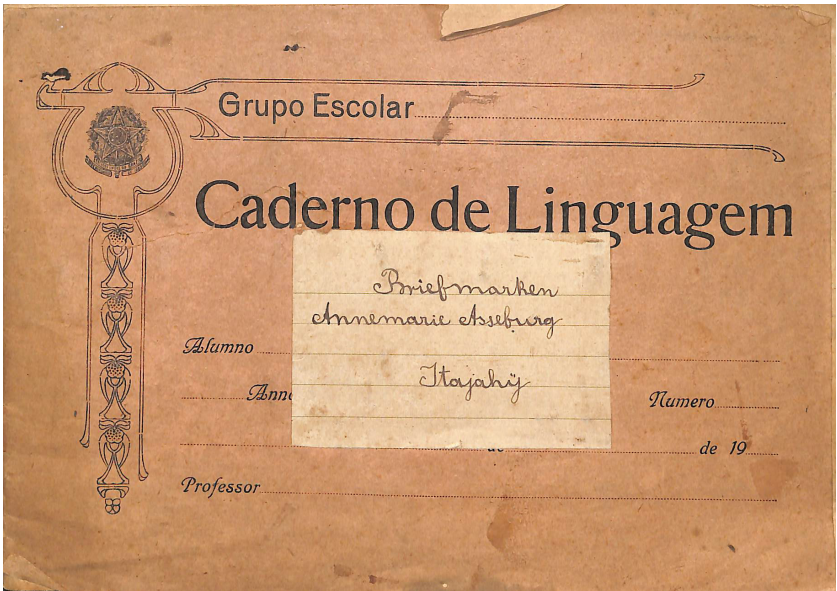 Grupo Escolar
Caderno de Linguagem
Briefmarken
Annemarie Asseburg
Itajahÿ
Alumno
Anno
Numero
de 19
Professor